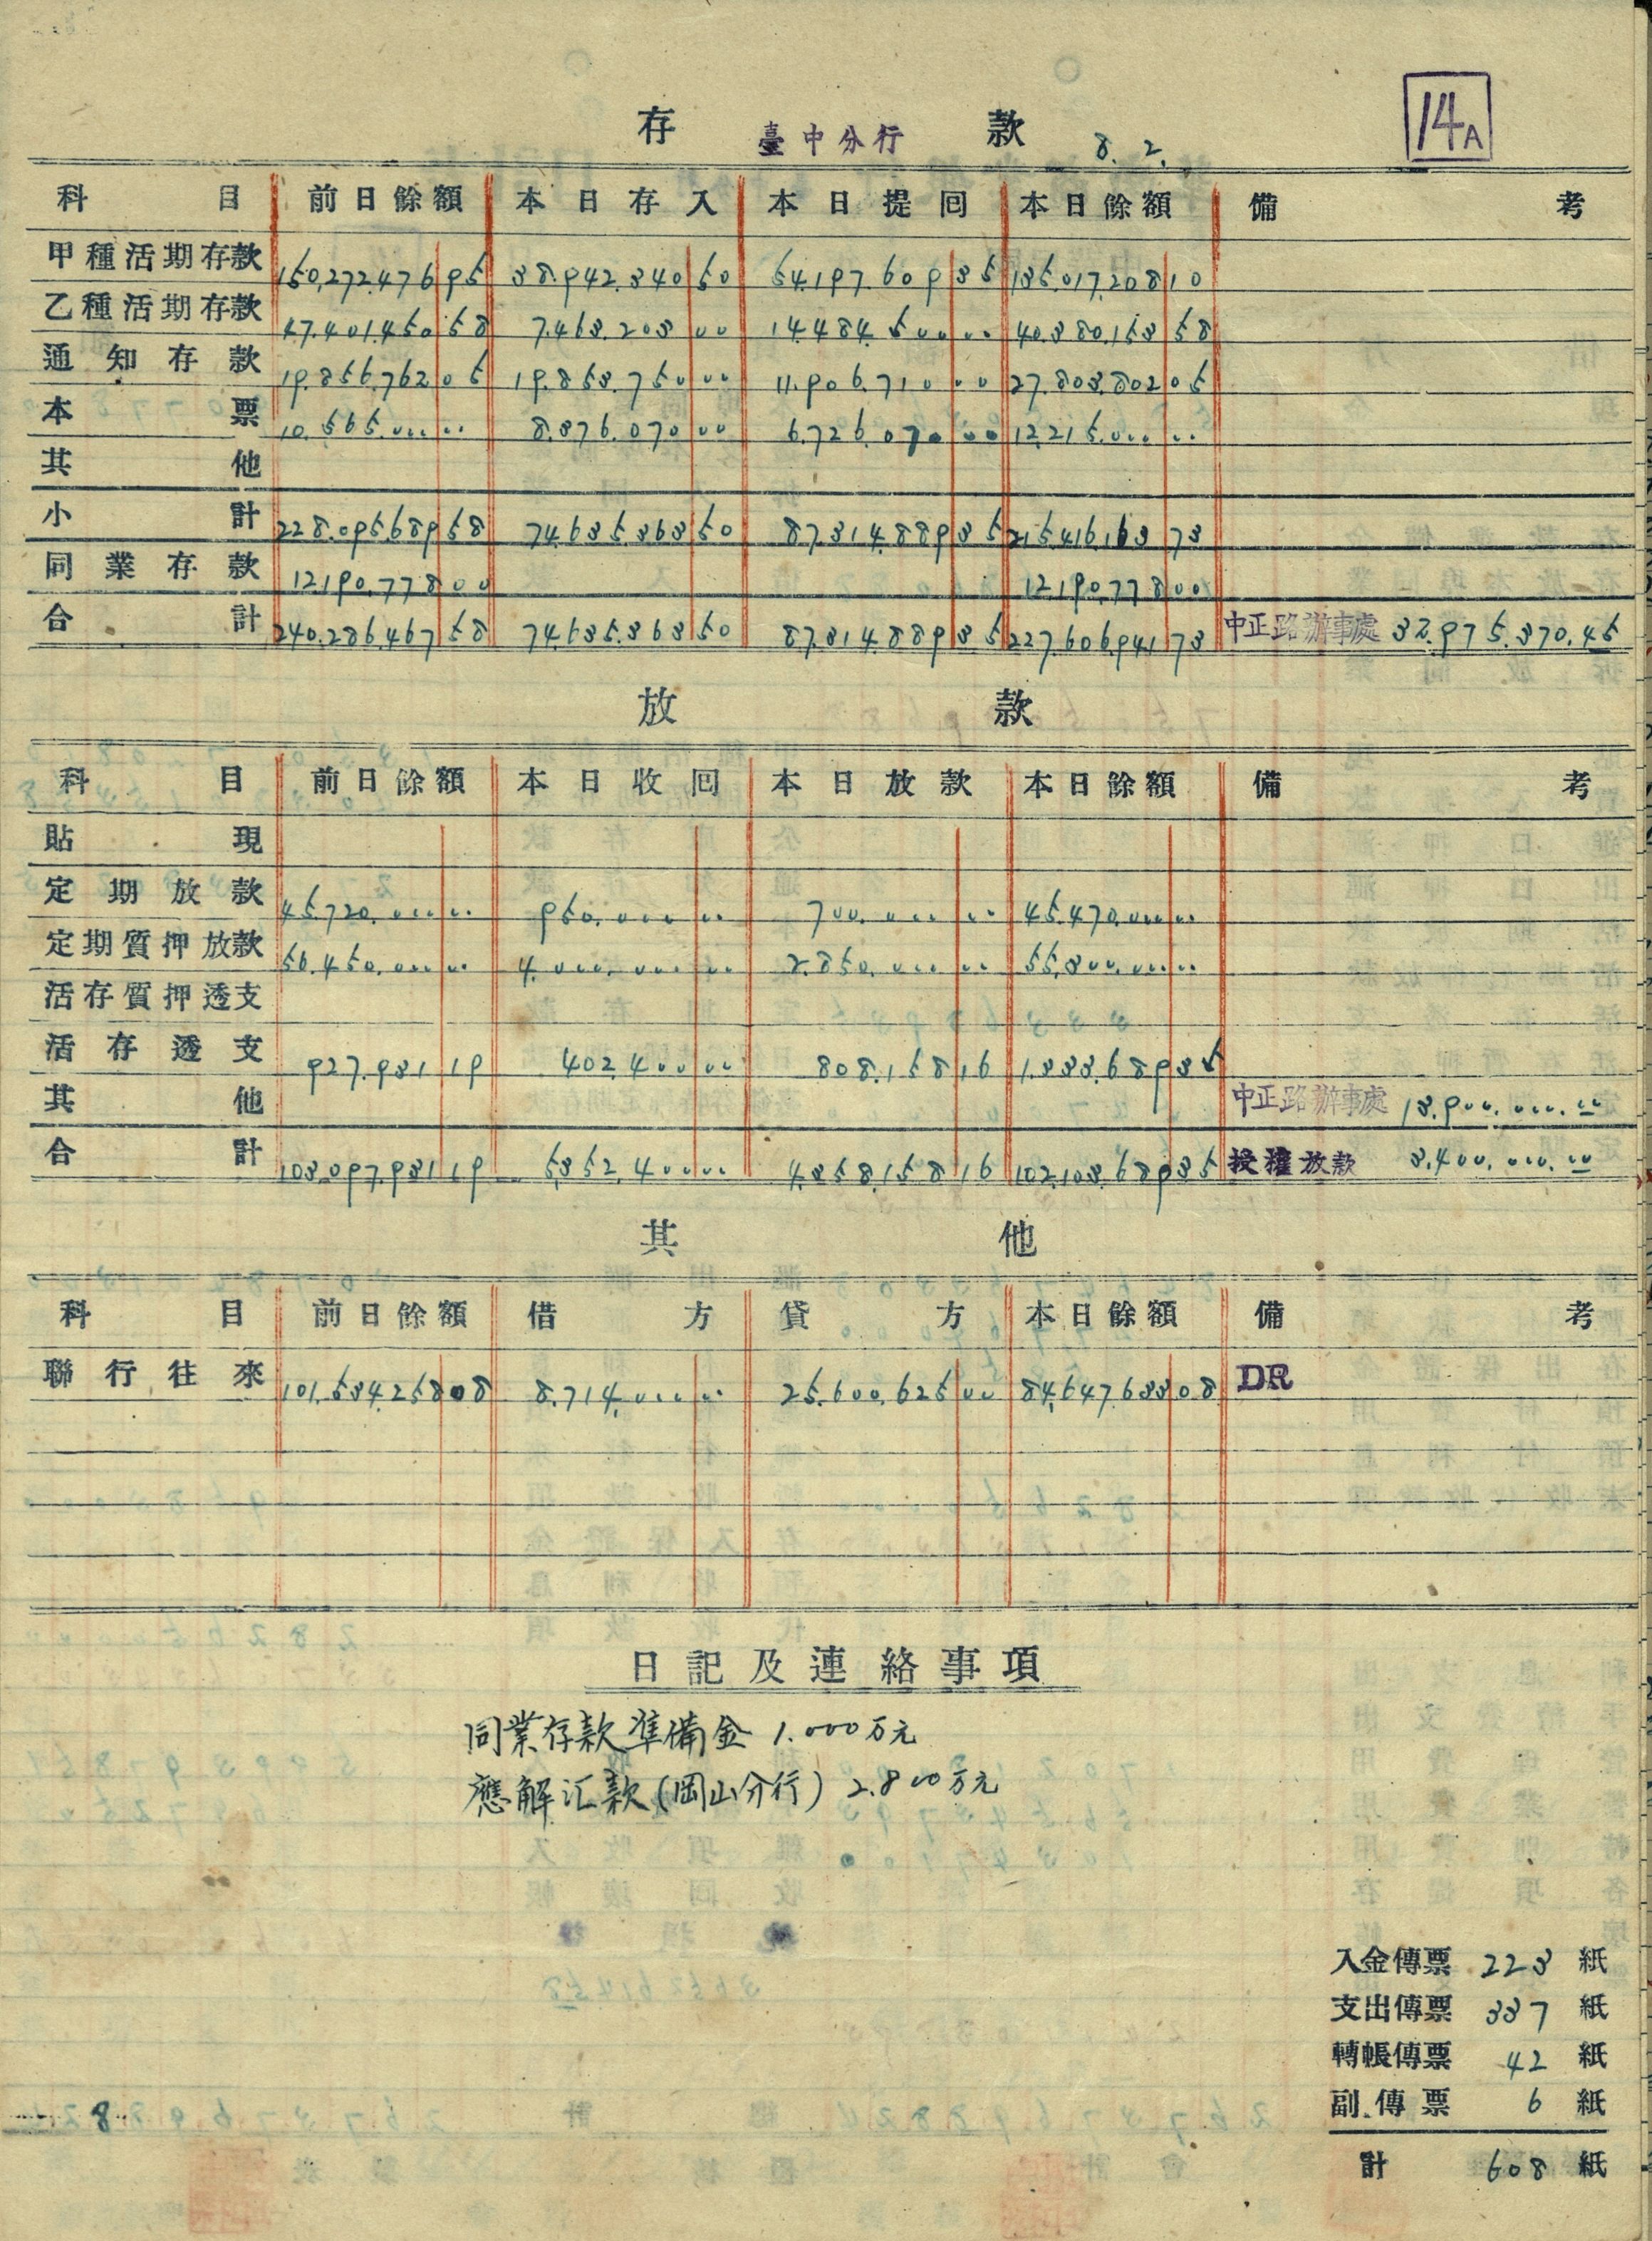 14A
存 臺中分行 款 8.2.
科目 前日餘額 本日存入 本日提囘 本日餘額 備考
甲種活期存款 150,272,476 95 38,942,340 50 54,197,609 35 135,017,208 10
乙種活期存款 47,401,450 58 7,463,203 00 14,484,500 00 40,380,153 58
通知存款 19,856,762 05 19,853,750 00 11,906,710 00 27,803,802 05
本票 10,565,000 00 8,376,070 00 6,726,070 00 12,215,000 00
其他
小計 228,095,689 58 74,635,363 50 87,314,889 35 215,416,163 73
同業存款 12,190,778 00 12,190,778 00
合計 240,286,467 58 74,635,363 50 87,314,889 35 227,606,941 73 中正路辦事處 32,975,370.45
放款
科目 前日餘額 本日收囘 本日放款 本日餘額 備考
貼現
定期放款 45,720,000 00 950,000 00 700,000 00 45,470,000 00
定期質押放款 56,450,000 00 4,000,000 00 2,850,000 00 55,300,000 00
活存質押透支
活存透支 927,931 19 402,400 00 808,158 16 1,333,689 35
其他 中正路辦事處 13,900,000.00
合計 103,097,931 19 5,352,400 00 4,358,158 16 102,103,689 35 授權放款 3,400,000.00
其他
科目 前日餘額 借方 貸方 本日餘額 備考
聯行往來 101,534,258 08 8,714,000 00 25,600,625 00 84,647,633 08 DR
日記及連絡事項
同業存款準備金 1.000万元
應解汇款(岡山分行) 2.800万元
入金傳票 223 紙
支出傳票 337 紙
轉帳傳票 42 紙
副傳票 6 紙
計 608 紙